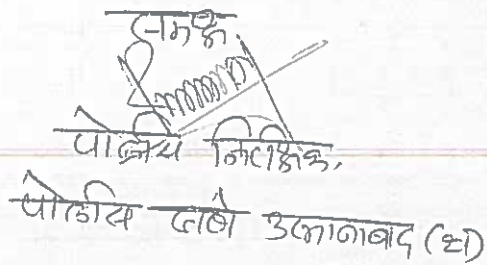 समक्ष.
पोलीस निरीक्षक,
पोलीस ठाणे उस्मानाबाद (श)